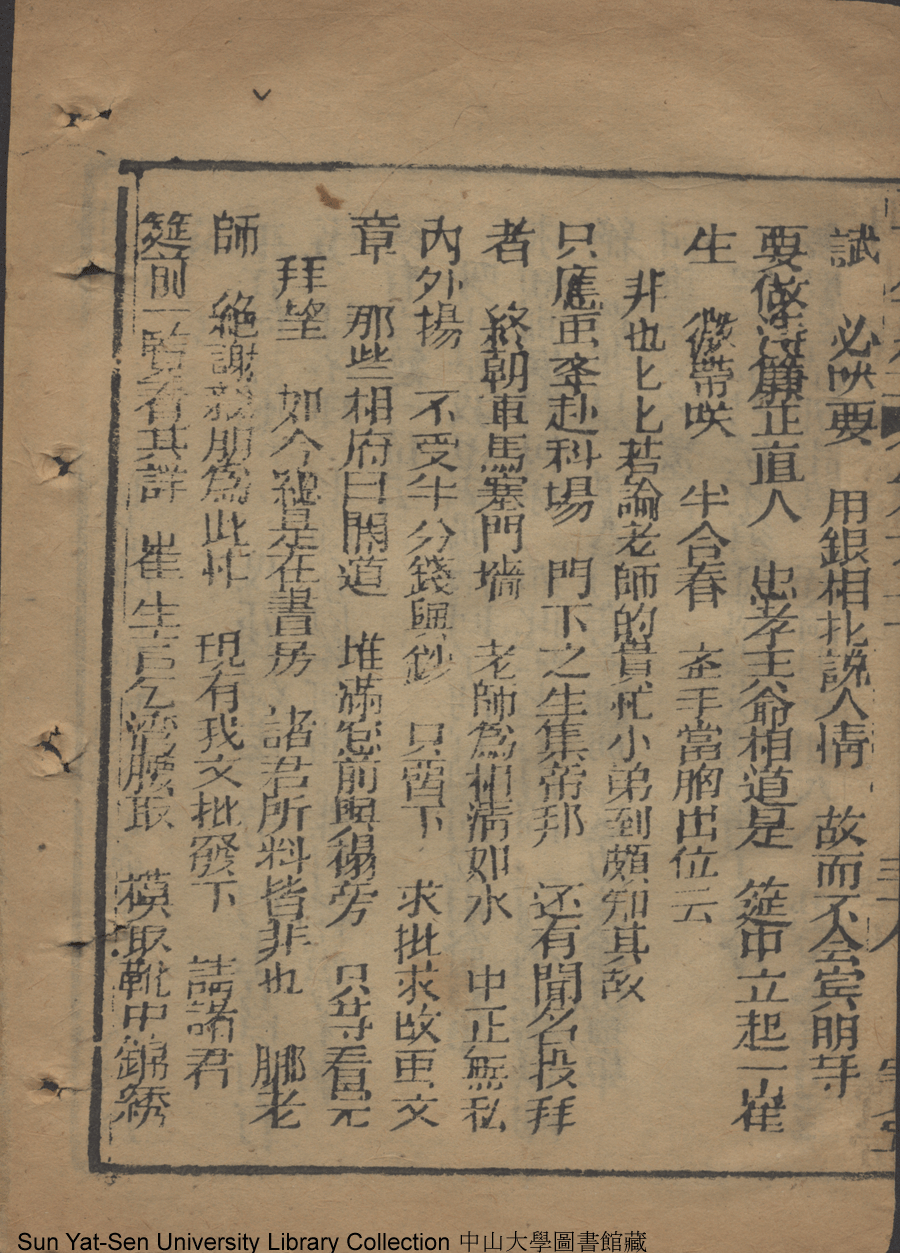 試　必然要　用銀相托説人情　故而不会賓朋等
要做清簾正直人　忠孝王爺相道是　筵中立起一崔
生　微帶咲　半合春　左手當胸出位云
非也匕匕若論老師的貴忙小弟到頗知其故
只應更本赴科場　門下之生集帝邦　还有聞名投拜
者　終朝車馬塞門墻　老師為相清如水　中正無私
内外揚　不受半分錢與鈔　只留下　求批求改更文
章　那些相府日開道　堆滿怱前與榻旁　只等看完
拜望　如今總是在書房　諸君所料皆非也　鄺老
師　絶謝親朋為此忙　現有我文批發下　請諸君
筵前一覧看其詳　崔生言乞湾腰取　模取靴中錦綉
Sun Yat-Sen University Library Collection 中山大學圖書館藏